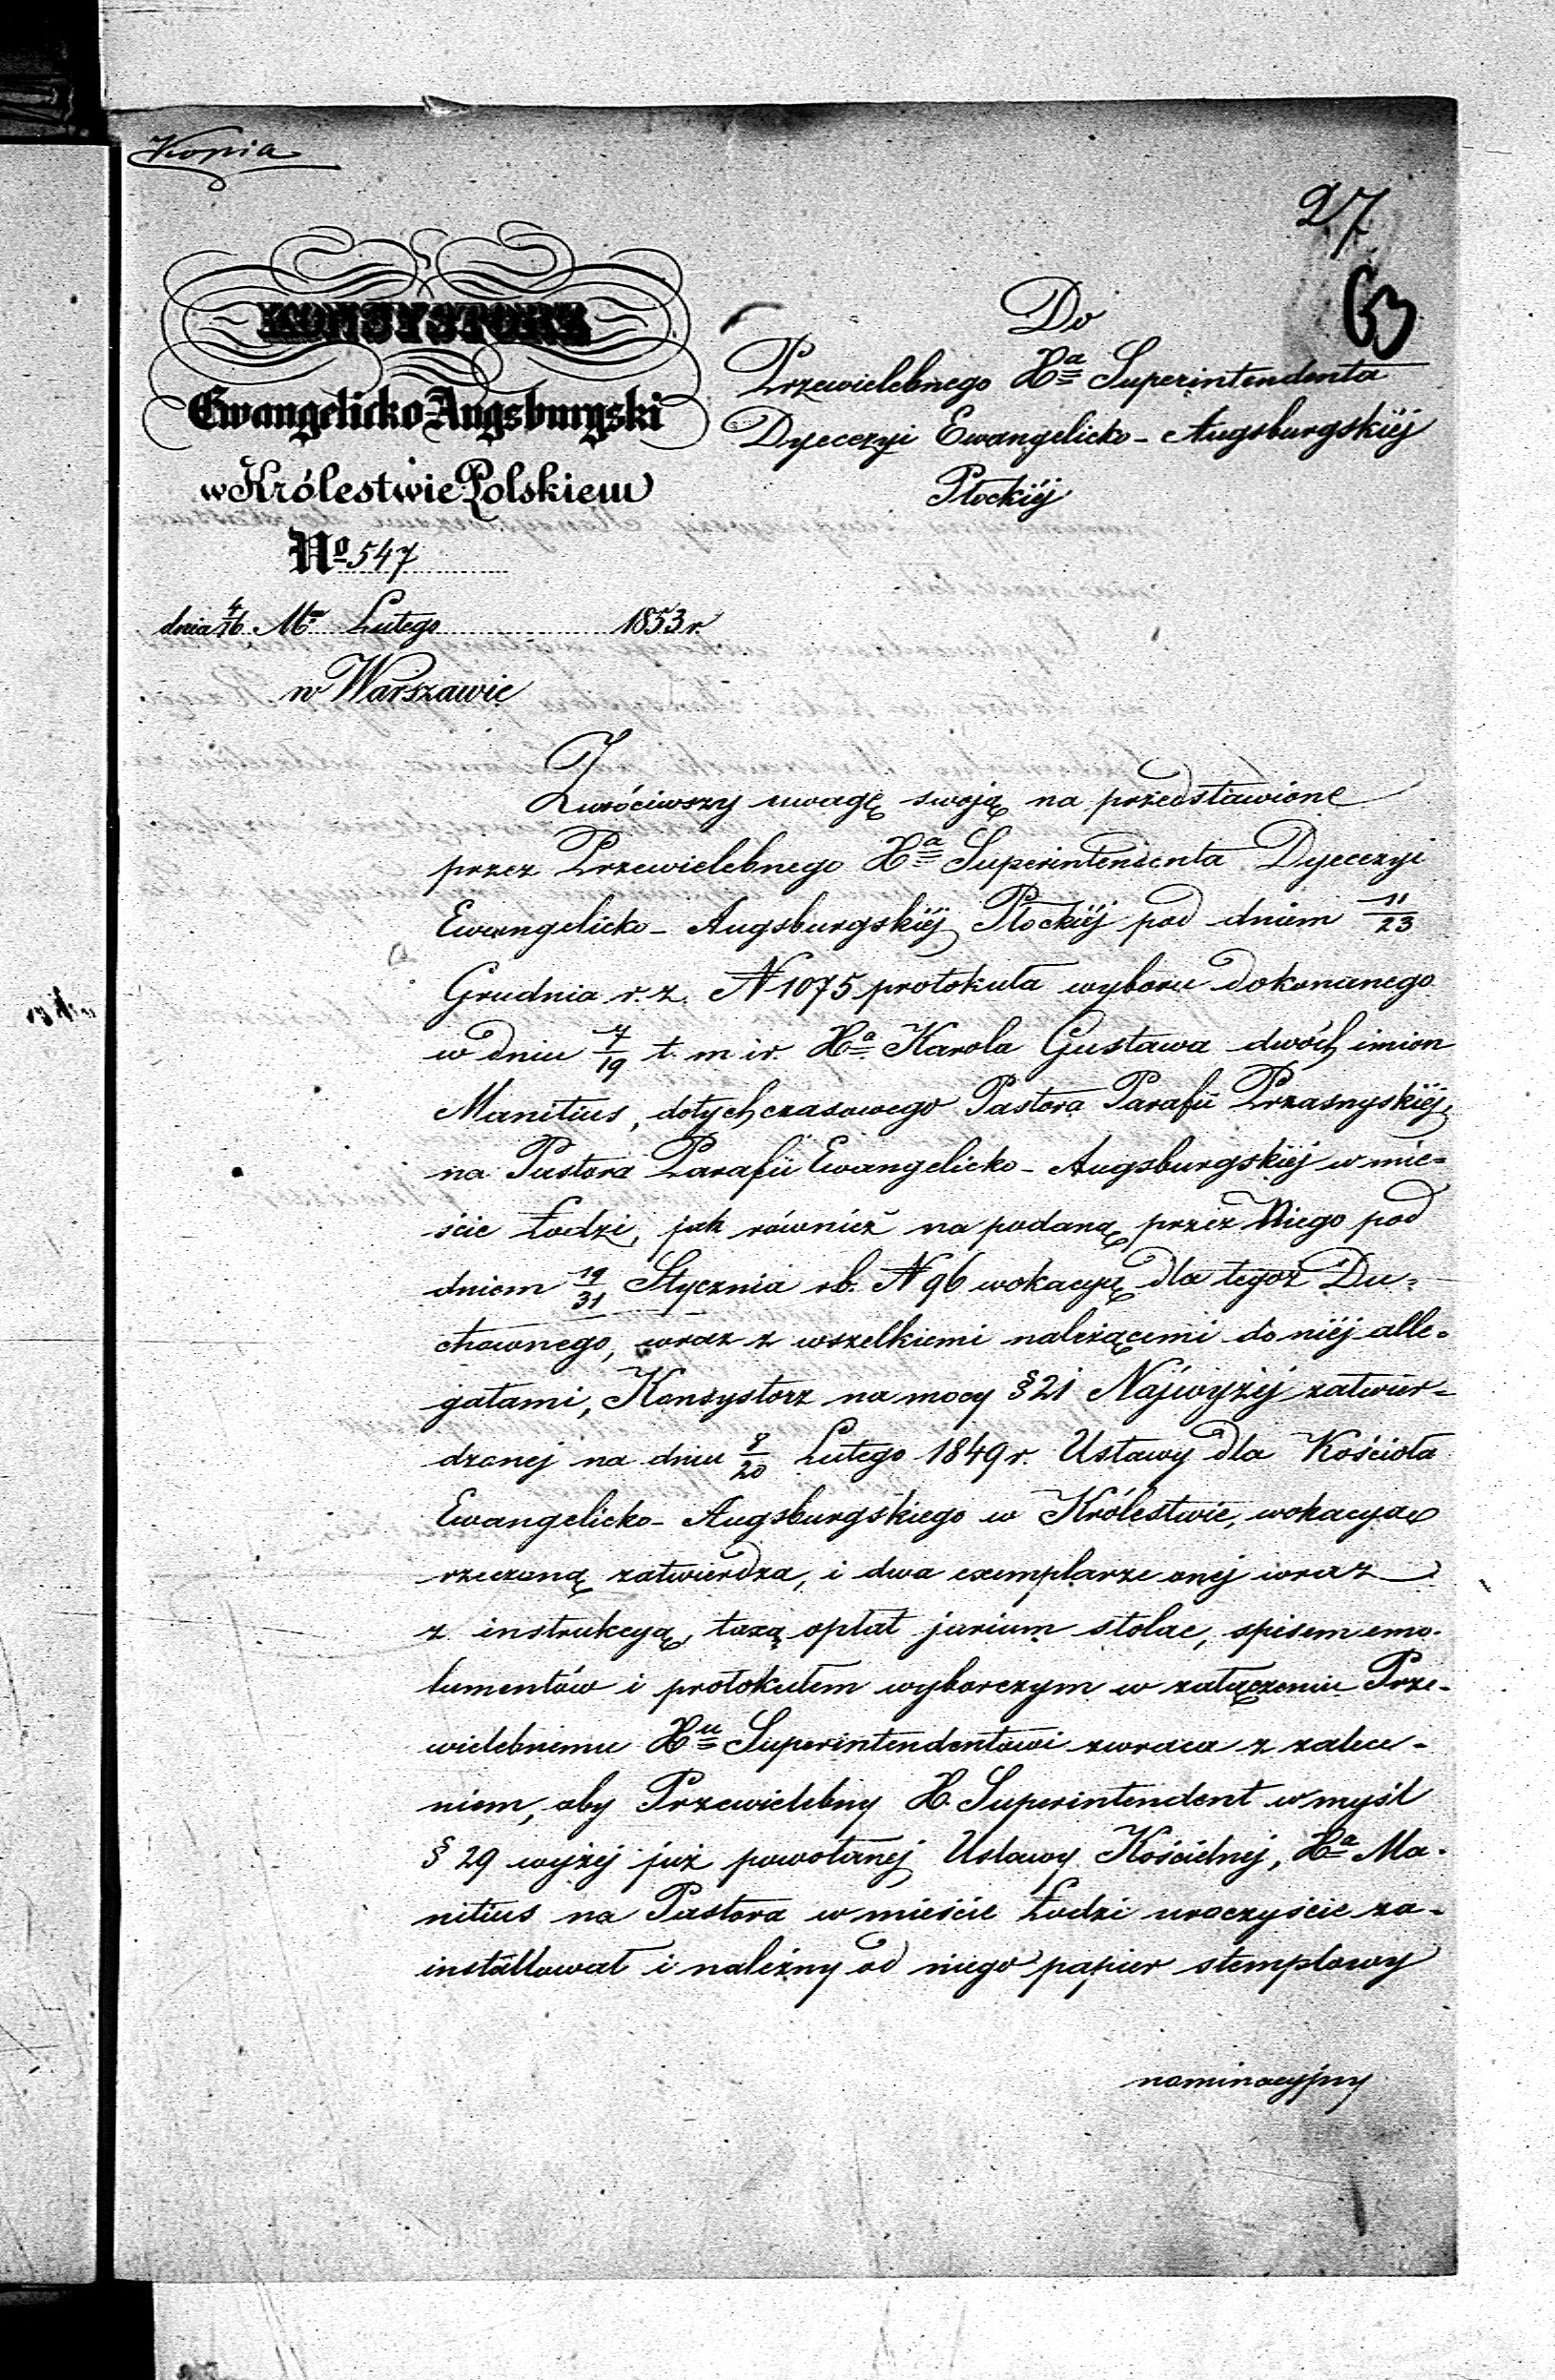 Kopia
27
63
KONSYSTORZ
Ewangelicko-Augsburgski
w Królestwie Polskiem
No 547
dnia 4/16 Mca Lutego 1853 r.
w Warszawie
Do
Przewielebnego Xa Superintendenta
Dyecezyi Ewangelicko-Augsburgskiéj
Płockiéj
Zwróciwszy uwagę swoją na przedstawione
przez Przewielebnego Xa Superintendenta Dyecezyi
Ewangelicko-Augsburgskiéj Płockiéj pod dniem 11/23
Grudnia r. z. N 1075 protokuła wyboru dokonanego
w dniu 7/19 t. m i r. Xa Karola Gustawa dwóch imion
Manitius, dotychczasowego Pastora Parafii Przasnyskiéj,
na Pastora Parafii Ewangelicko-Augsburgskiéj w mie-
ście Łodzi, jak również na podaną przez Niego pod
dniem 19/31 Stycznia r.b. N 96 wokacyą dla tegoż Du-
chownego, wraz z wszelkiemi należącemi do niéj alle-
gatami, Konsystorz na mocy § 21 Najwyżéj zatwier-
dzonej na dniu 8/20 Lutego 1849 r. Ustawy dla Kościoła
Ewangelicko-Augsburgskiego w Królestwie, wokacyą
rzeczoną zatwierdza, i dwa exemplarze onej wraz
z instrukcyą, taxą opłat jurium stolae, spisem emo-
lumentów i protokułem wyborczym w załączeniu Prze-
wielebnemu Xu Superintendentowi zwraca z zalece-
niem, aby Przewielebny X. Superintendent w myśl
§ 29 wyżéj już powołanéj Ustawy Kościelnéj, Xa Ma-
nitius na Pastora w mieście Łodzi uroczyście za-
installował i należny od niego papier stemplowy
nominacyjny